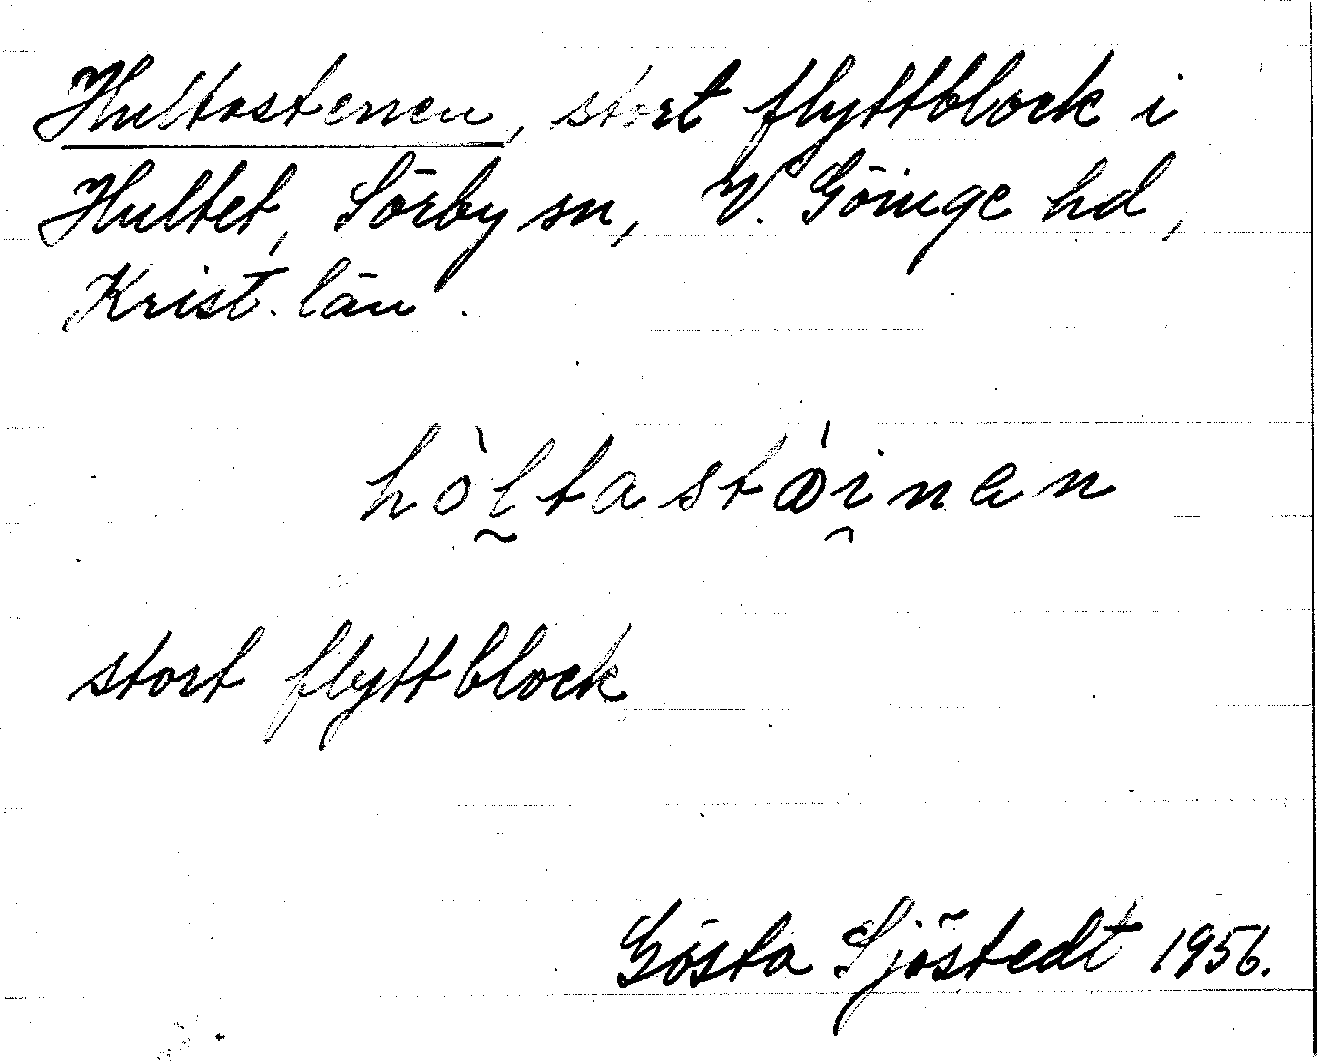 Hultastenen, stort flyttblock i
Hultet, Sörby sn, V. Göinge hd,
Krist. län.
hòltastǿinen
stort flyttblock
Gösta Sjöstedt 1956.